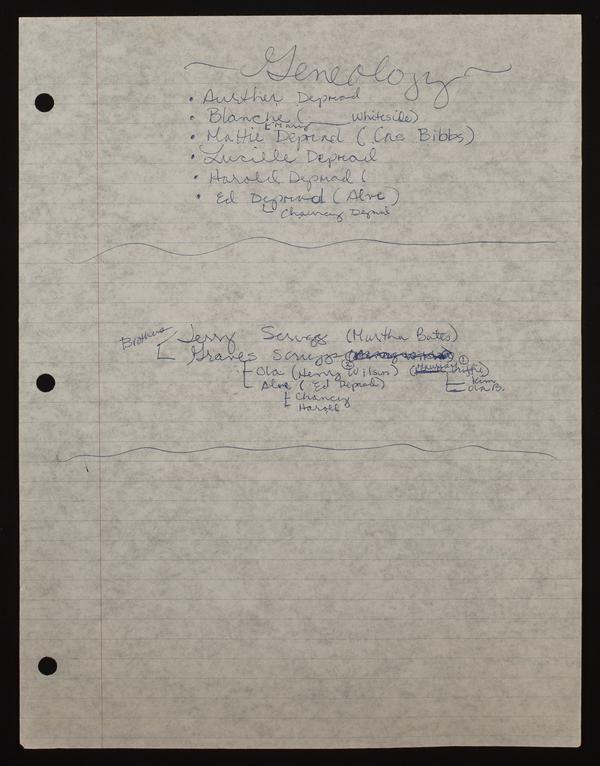 ~ Geneology ~
• Aurther Depriad
• Blanche (____ Whiteside)
Mary
• Mattie Depriad (Cas Bibbs)
• Lucille Depriad
• Harold Depriad (
• Ed Depriad (Alve)
Chancey Depriad
Brothers Jerry Scruggs (Martha Bates)
Graves Scruggs
Ola (Henry Wilson) ② ( ①
Alve (Ed Depriad) Kim
Chancey Ola B.
Harold